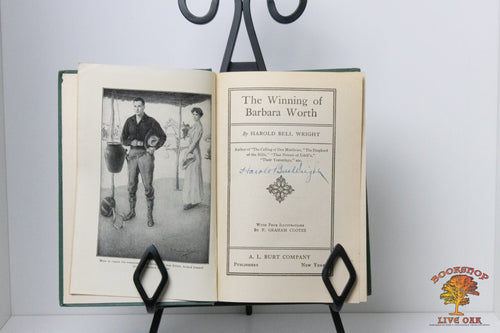 The Winning of
Barbara Worth
By HAROLD BELL WRIGHT
Author of "The Calling of Dan Matthews," "The Shepherd
of the Hills," "That Printer of Udell's,"
"Their Yesterdays," etc.
Harold Bell Wright
WITH FOUR ILLUSTRATIONS
BY F. GRAHAM COOTES
A. L. BURT COMPANY
PUBLISHERS NEW YORK
BOOKSHOP
LIVE OAK